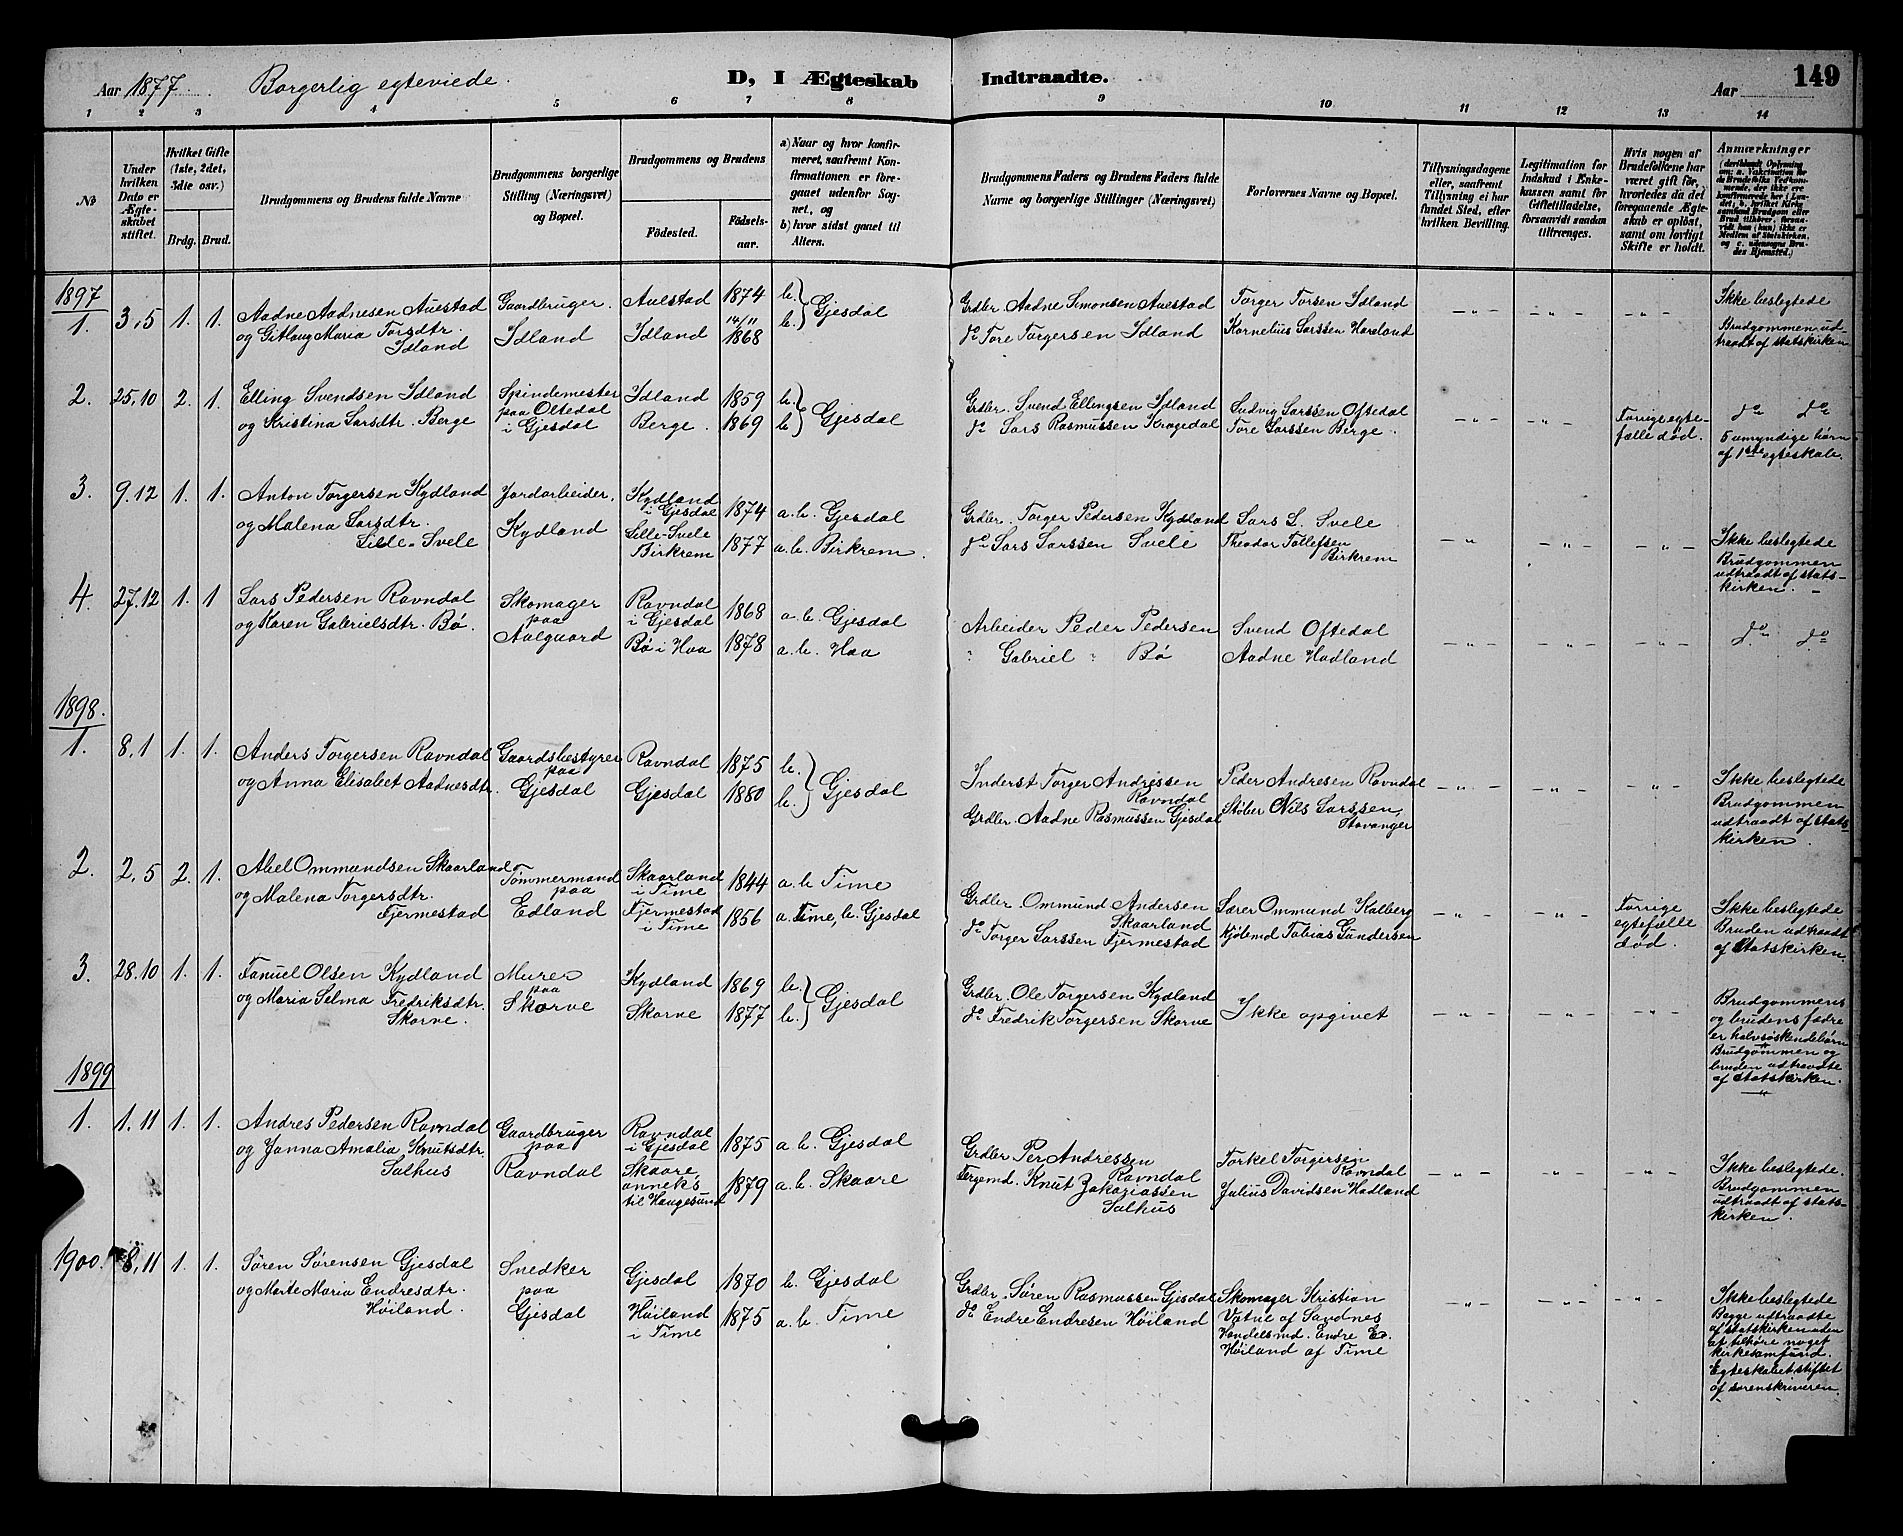 Aar 1877. Borgerlig egteviede. D, I Ægteskab Indtraadte. Aar 149
1 2 3 4 5 6 7 8 9 10 11 12 13 14
No
Under hvilken Dato er Ægteskabet stiftet.
Hvilket Gifte (1ste, 2det, 3die osv.)
Brdg. Brud.
Brudgommens og Brudens fulde Navne
Brudgommens borgerlige Stilling (Næringsvei) og Bopæl.
Brudgommens og Brudens
Fødested. Fødselsaar.
a) Naar og hvor konfirmeret, saafremt Konfirmationen er foregaaet udenfor Sognet, og
b) hvor sidst gaaet til Alters.
Brudgommens Faders og Brudens Faders fulde Navne og borgerlige Stillinger (Næringsvei)
Forlovernes Navne og Bopæl.
Tillysningsdagene eller, saafremt Tillysning ei har fundet Sted, efter hvilken Bevilling.
Legitimation for Indskud i Enkekassen samt for Giftetilladelse, forsaavidt saadan tiltrænges.
Hvis nogen af Brudefolkene har været gift før, hvorledes da det foregaaende Ægteskab er opløst, samt om lovligt Skifte er holdt.
Anmærkninger
1897
1. 3,5 1. 1. Aadne Aadnesen Auestad
og Gitlaug Maria Torsdtr.
Idland
Gaardbruger.
Idland
Auestad 1874 b.
14/11
Idland 1868 b.
Gjesdal
Grdbr. Aadne Simonsen Auestad
do Tore Torgersen Idland
Torger Torsen Idland
Kornelius Larssen Haveland
— " — — " — — " —
Ikke beslegtede
Brudgommen ud-
traadt af statskirken
2. 25,10 2. 1. Elling Svendsen Idland
og Kristina Larsdtr. Berge
Spindemester
paa Oltedal
i Gjesdal
Idland 1859 b.
Berge. 1869 b.
Gjesdal
Grdbr. Svend Ellingsen Idland
do Lars Rasmussen Kragedal
Ludvig Larssen Oftedal
Tore Larssen Berge.
— " — — " —
Forrige egte-
fælle død.
do do
5 umyndige børn
af 1ste egteskab.
3. 9.12 1. 1. Anton Torgersen Kydland
og Malena Larsdtr.
Lille-Svele
Jordarbeider.
Kydland
Kydland
i Gjesdal 1874 a.b. Gjesdal
Lille-Svele
Birkrem 1877 a.b. Birkrem.
Grdbr. Torger Pedersen Kydland
do Lars Larssen Svele
Lars L. Svele
Theodor Tollefsen
Birkrem
— " — — " — — " —
Ikke beslegtede
Brudgommen
udtraadt af stats-
kirken. —
4. 27.12 1. 1 Lars Pedersen Ravndal
og Karen Gabrielsdtr. Bø.
Skomager
paa
Aalgaard
Ravndal
i Gjesdal 1868 a.b. Gjesdal
Bø i Haa 1878 a.b. Haa
Arbeider Peder Pedersen
" Gabriel " Bø
Svend Oftedal
Aadne Hadland
— " — — " — — " —
do do
1898.
1. 8,1 1. 1. Anders Torgersen Ravndal
og Anna Elisabet Aadnesdtr.
Gaardsbestyrer
paa
Gjesdal
Ravndal 1875 b.
Gjesdal 1880 b.
Gjesdal
Inderst Torger Andressen
Ravndal
Grdbr. Aadne Rasmussen Gjesdal
Peder Andresen Ravndal
Støber Nils Larssen,
Stavanger
— " — — " — — " —
Ikke beslegtede
Brudgommen
udtraadt af stats-
kirken.
2. 2,5 2. 1. Abel Ommundsen Skaarland
og Malena Torgersdtr.
Fjermestad
Tømmermand
paa
Edland
Skaarland
i Time 1844 a.b Time
Fjermestad
i Time 1856 a. Time, b. Gjesdal
Grdbr. Ommund Andersen
Skaarland
do Torger Larssen Fjermestad
Lærer Ommund Kalberg
Kjøbmd Tobias Gundersen
— " — — " —
Forrige
egtefælle
død.
Ikke beslegtede
Bruden udtraadt
af statskirken.
3. 28.10 1. 1. Fanuel Olsen Kydland
og Maria Selma Fredriksdtr.
Skorve.
Murer
paa
Skorve
Kydland 1869 b.
Skorve 1877 b.
Gjesdal
Grdbr. Ole Torgersen Kydland
do Fredrik Torgersen Skorve
Ikke opgivet
— " — — " — — " —
Brudgommens
og brudens fædre
er halvsøskendebørn
Brudgommen og
bruden udtraadte
af statskirken.
1899
1. 1.11 1. 1. Andres Pedersen Ravndal
og Janna Amalia Knutsdtr.
Salhus
Gaardbruger
paa
Ravndal
Ravndal
i Gjesdal 1875 a b. Gjesdal
Skaare
anneks
til Haugesund 1879 a.b. Skaare
Grdbr Per Andressen
Ravndal
Færgemd. Knut Zakariassen
Salhus
Torkel Torgersen
Ravndal
Julius Davidsen Hadland
— " — — " — — " —
Ikke beslegtede.
Brudgommen
udtraadt af stats-
kirken.
1900. 8,11 1. 1. Søren Sørensen Gjesdal
og Marte Maria Endresdtr.
Høiland.
Snedker
paa
Gjesdal
Gjesdal 1870 b. Gjesdal
Høiland
i Time 1875 a.b. Time
Grdbr. Søren Rasmussen Gjesdal
do Endre Endresen Høiland
Skomager Kristian
Vatne af Sandnes
Handelsmd. Endre E.
Høiland af Time
— " — — " — — " —
Ikke beslegtede
Begge udtraadte
af statskirken uden
at tilhøre noget
kirkesamfund.
Egteskabet stiftet
af sorenskriveren.